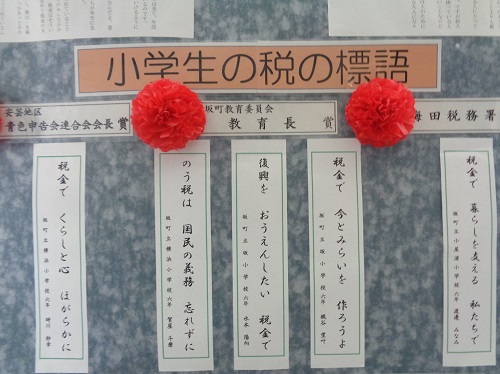 小学生の税の標語
安芸地区
青色申告会連合会会長賞
坂町教育委員会
教育長賞
海田税務署
税金で 暮らしを支える 私たちで
坂町立小屋浦小学校六年 渡邊 みなみ
税金で 今とみらいを 作ろうよ
坂町立坂小学校六年
復興を おうえんしたい 税金で
坂町立坂小学校六年 水本 陽向
のう税は 国民の義務 忘れずに
坂町立横浜小学校六年
税金で くらしと心 ほがらかに
坂町立横浜小学校六年